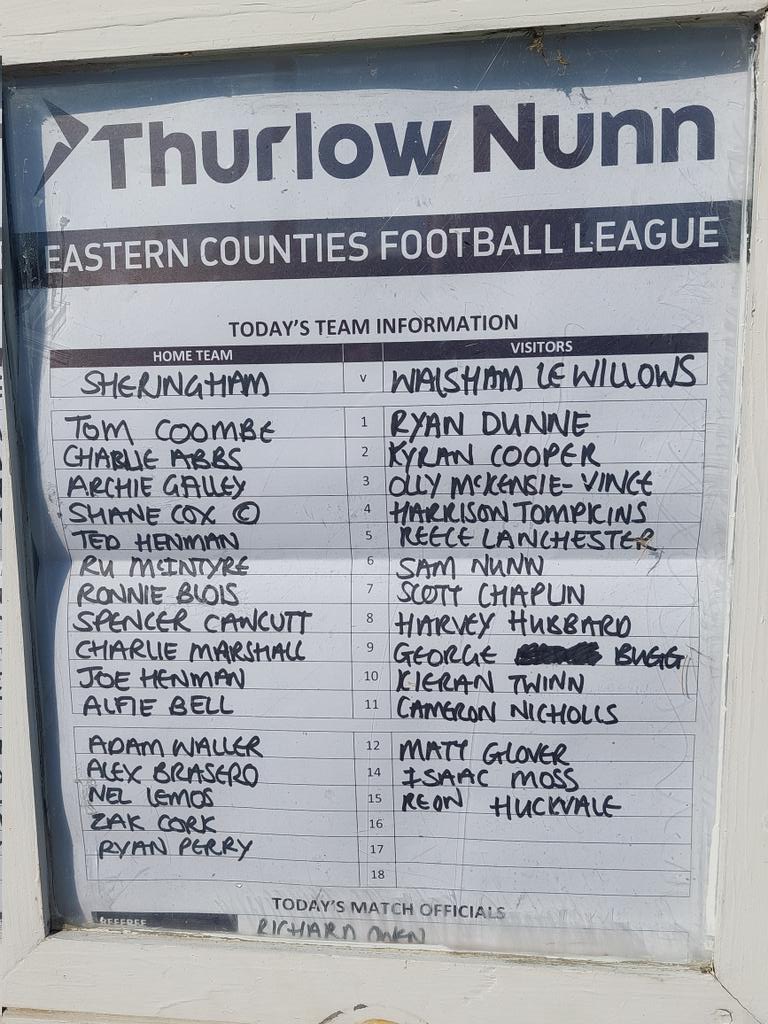 Thurlow Nunn
EASTERN COUNTIES FOOTBALL LEAGUE
TODAY'S TEAM INFORMATION
HOME TEAM VISITORS
SHERINGHAM V WALSHAM LE WILLOWS
TOM COOMBE 1 RYAN DUNNE
CHARLIE ABBS 2 KYRAN COOPER
ARCHIE GALLEY 3 OLLY MCKENSIE-VINCE
SHANE COX © 4 HARRISON TOMPKINS
TED HENMAN 5 REECE LANCHESTER
RU MCINTYRE 6 SAM NUNN
RONNIE BLOIS 7 SCOTT CHAPLIN
SPENCER CAWCUTT 8 HARVEY HUBBARD
CHARLIE MARSHALL 9 GEORGE BUGG
JOE HENMAN 10 KIERAN TWINN
ALFIE BELL 11 CAMERON NICHOLLS
ADAM WALLER 12 MATT GLOVER
ALEX BRASERO 14 ISAAC MOSS
NEL LEMOS 15 REON HUCKVALE
ZAK CORK 16
RYAN PERRY 17
18
TODAY'S MATCH OFFICIALS
REFEREE RICHARD